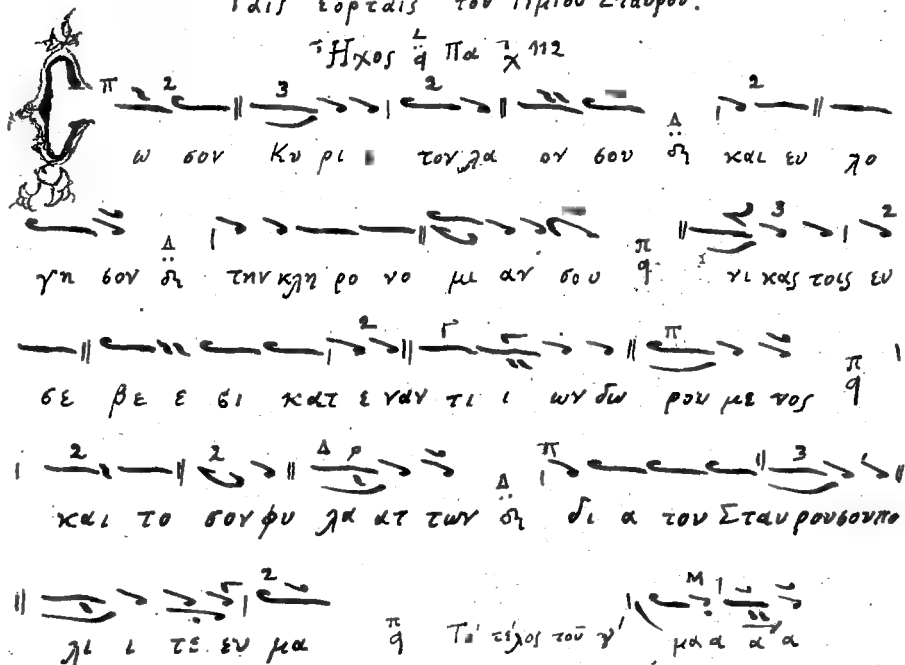 Ταῖς ἑορταῖς τοῦ Τιμίου Σταυροῦ.
Ἦχος q Πα χ 112
ω σον Κυ ρι ε τον λα ον σου Δ και ευ λο
γη σον Δ την κλη ρο νο μι αν σου π q νι κας τοις ευ
σε βε ε σι κατ ε ναν τι ι ων δω ρου με νος π q
και το σον φυ λα ατ των Δ δι α του Σταυρου σου πο
λι ι τε ευ μα π q Το τέλος τοῦ γ' μα α α α